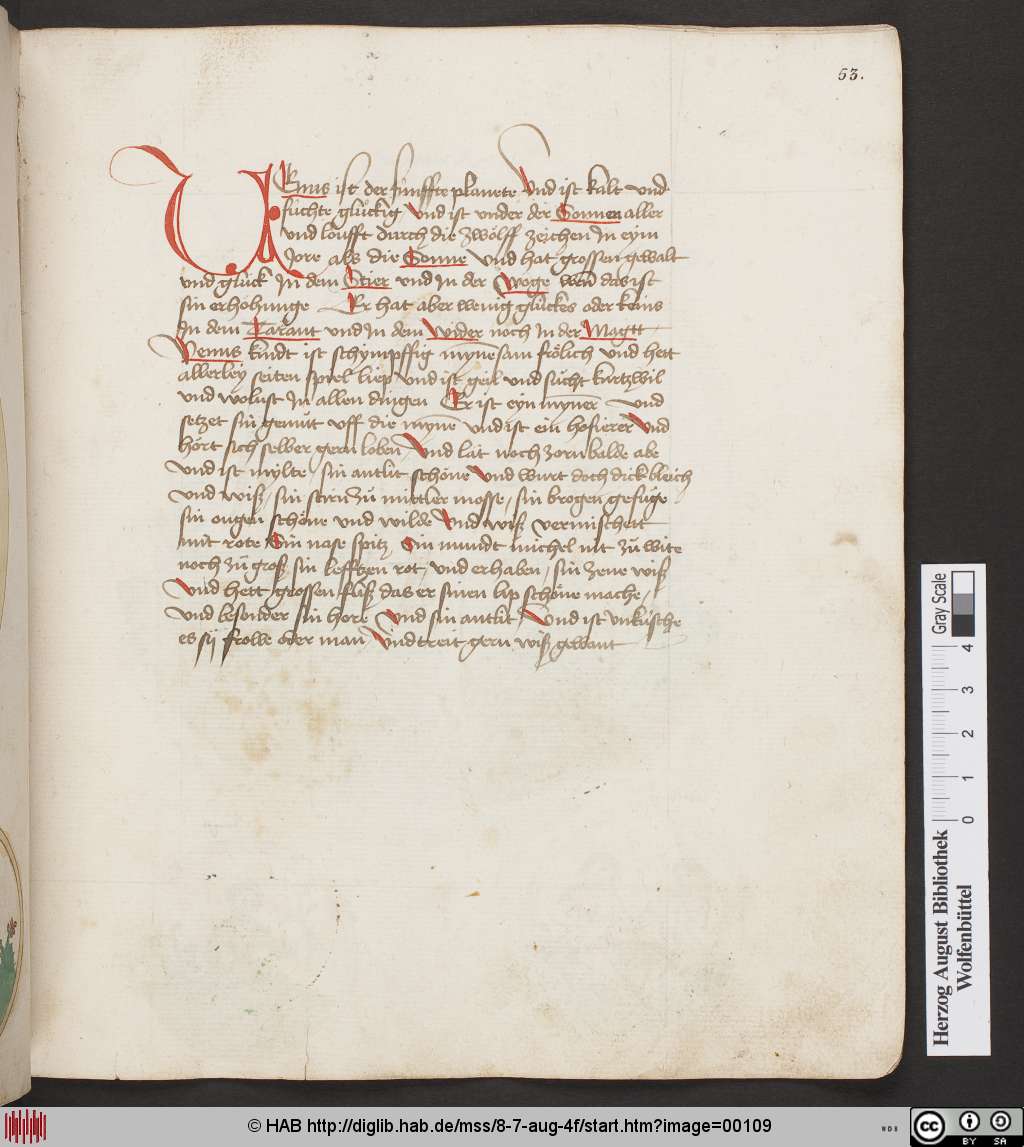 53.
VEnus ist der fünffte planete Vnd ist kalt vnd
fuͤchte gluͤckig Vnd ist vnder der Sonnen aller
vnd loufft durch die zwoͤlff zeichen In eym
Jore als die Sonne Vnd hat grossen gewalt
vnd gluͤck In dem Stier vnd In der Woge wen̄ das ist
sin erhoͤhunge Er hat aber wenig gluͤckes oder keins
In dem Tarant vnd In dem Wider noch In der Magtt
Venus kindt ist schympffig mynesam froͤlich vnd hett
allerley seiten spiel liep vnd ist geil vnd suͦcht kurtzwil
vnd wolust In allen dingen Er ist eyn myner vnd
setzet sin gemuͤt vff die myne vnd ist ein hofierer Vnd
hoͤrt sich selber gern loben Vnd lat noch zorn balde abe
vnd ist mylte / sin antlit schoͤne Vnd wurt doch dick bleich
vnd wiß / sin stirn zuͦ mittler mosse / sin brogen gefuͤge
sin ougen schoͤne vnd wilde Vnd wiß vermischett
mit rote Sin nase spitz Sin mundt michel nit zuͦ wite
noch zuͦ groß sin lefftzen rot / vnd erhaben / sin zene wiß
Vnd hett grossen fliß das er sinen lip schoͤne mache /
vnd besonder sin hore Vnd sin antlit / Vnd ist vnkuͤsche
es sÿ frowe oder man Vnd treit gern wiß gewant
Gray Scale
0 1 2 3 4
Herzog August Bibliothek
Wolfenbüttel
© HAB http://diglib.hab.de/mss/8-7-aug-4f/start.htm?image=00109
WDB
cc BY SA